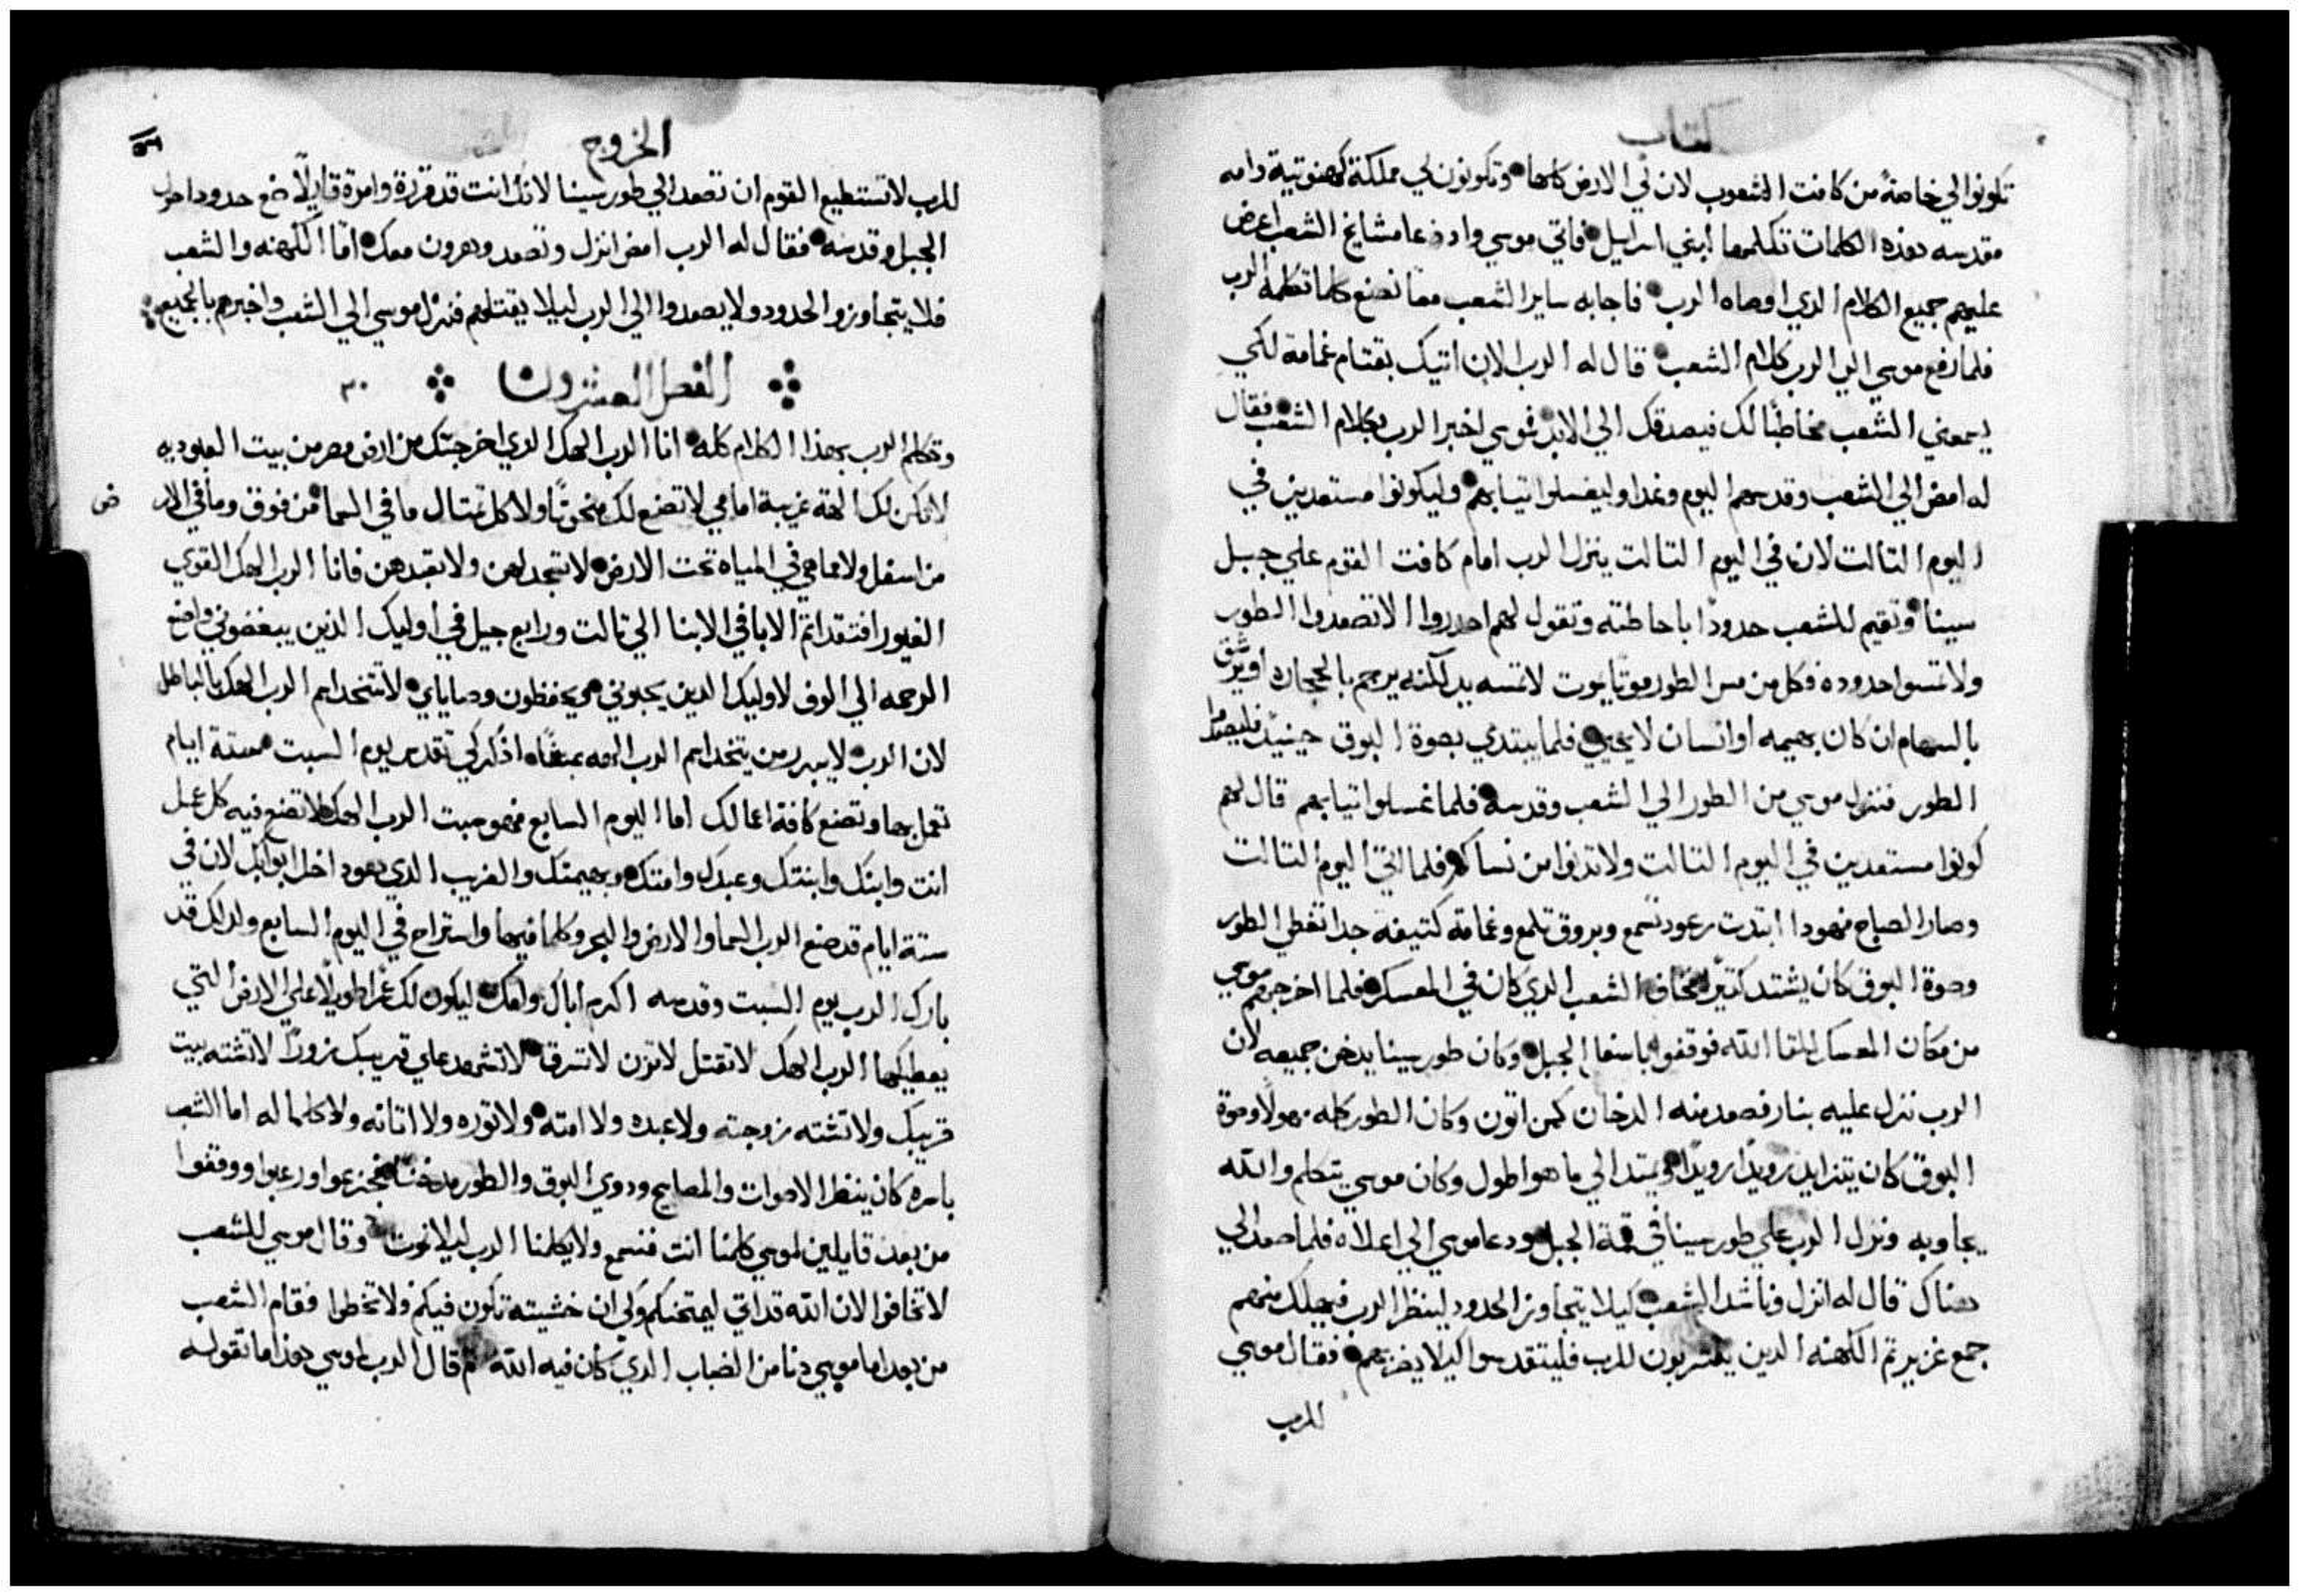 كتاب
تكونوا لي خاصةً من كافت الشعوب لان لي الارض كلها وتكونون لي مملكة كهنوتية وامه
مقدسه هذه الكلمات تكلمها لبني اسرايل فاتي موسي واذ دعا مشايخ الشعب اعرض
عليهم جميع الكلام الدي اوصاه الرب فاجابه ساير الشعب معاً نصنع كلما تكلمه الرب
فلما رفع موسي الي الرب كلام الشعب قال له الرب الان اتيك بقتام غمامة لكي
يسمعني الشعب مخاطبًا لك فيصدقك الي الابد فموسي اخبر الرب بكلام الشعب فقال
له امض الي الشعب وقدسهم اليوم وغدا وليغسلوا تيابهم وليكونوا مستعدين في
اليوم التالت لان في اليوم التالت ينزل الرب امام كافت القوم علي جبل
سينا وتقيم للشعب حدودًا باحاطته وتقول لهم احدروا الا تصعدوا الطور
ولا تمسوا حدوده فكل من مس الطور موتًا يموت لا تمسه يد لكنه يرجم بالحجاره او يرشق
بالسهام ان كان بهيمه او انسان لا يحيي فلما يبتدي بصوة البوق حينيدٍ فليصعدوا
الطور فنزل موسي من الطور الي الشعب وقدسه فلما غسلوا تيابهم قال لهم
كونوا مستعدين في اليوم التالت ولا تدنوا من نساكم فلما اتي اليوم التالت
وصار الصباح فهودا ابتدت رعود تسمع وبروق تلمع وغمامة كتيفه جدا تغطي الطور
وصوة البوق كان يشتد كتيرًا فخاف الشعب الدي كان في المعسكر فلما اخرجهم موسي
من مكان المعسكر للقا الله فوقفوا باسفل الجبل وكان طور سينا يدخن جميعه لان
الرب نزل عليه بنار فصعد منه الدخان كمن اتون وكان الطور كله مهولًا وصوة
البوق كان يتزايد رويدًا رويدًا ويمتد الي ما هو اطول وكان موسي يتكلم والله
يجاوبه ونزل الرب علي طور سينا في قمة الجبل ودعا موسي الي اعلاه فلما صعد الي
هناك قال له انزل وناشد الشعب كيلا يتجاوز الحدود لينظر الرب فيهلك منهم
جمع غزير تم الكهنه الدين يقتربون للرب فليتقدسوا ليلا يضربهم فقال موسي
للرب
الخروج
٥٦
للرب لا تستطيع القوم ان تصعد الي طور سينا لانك انت قد قررة وامرة قايلًا ضع حدودا حول
الجبل وقدسه فقال له الرب امض انزل وتصعد وهرون معك امّا الكهنه والشعب
فلا يتجاوزوا الحدود ولا يصعدوا الي الرب ليلا يقتلهم فنزل موسي الي الشعب واخبرهم بالجميع
الفصل العشرون ٢٠
وتكلم الرب بهذا الكلام كله انا الرب الهك الدي اخرجتك من ارض مصر من بيت العبوديه
لا تكن لك الهة غريبة امامي لا تصنع لك منحوتًا ولا كل تمتال ما في السما من فوق وما في الار
ض
من اسفل ولا مما هي في المياه تحت الارض لا تسجد لهن ولا تعبدهن فانا الرب الهك القوي
الغيور افتقد اتم الابا في الابنا الي تالت ورابع جيل في اوليك الذين يبغضوني واضع
الرحمه الي الوف لاوليك الدين يحبوني ويحفظون وصاياي لا تتخد اسم الرب الهك بالباطل
لان الرب لا يبرر من يتخد اسم الرب الهه بمقاه اذكر كي تقدس يوم السبت ستة ايام
تعمل بها وتصنع كافة اعمالك اما اليوم السابع فهو سبت الرب الهك لا تصنع فيه كل عمل
انت وابنك وابنتك وعبدك وامتك وبهيمتك والغريب الدي هو داخل ابوابك لان في
ستة ايام قد صنع الرب السما والارض والبحر وكلما فيها واستراح في اليوم السابع ولدلك قد
بارك الرب يوم السبت وقدسه اكرم اباك وامك ليكون لك عمرًا طويلًا علي الارض التي
يعطيكها الرب الهك لا تقتل لا تزن لا تسرق لا تشهد علي قريبك زورًا لا تشته بيت
قريبك ولا تشته زوجته ولا عبده ولا امته ولا توره ولا اتانه ولا كلما له اما الشعب
باسره كان ينظر الاصوات والمصابيح ودوي البوق والطور مدخنًا فجزعوا ورعبوا ووقفوا
من بعد قايلين لموسي كلمنا انت فنسمع ولا يكلمنا الرب ليلا نموت وقال موسي للشعب
لا تخافوا لان الله قد اتي ليمتحنكم ولي ان خشيته تكون فيكم ولا تخطوا فقام الشعب
من بعد اما موسي دنا من الضباب الدي كان فيه الله تم قال الرب لموسي هذا ما تقوله